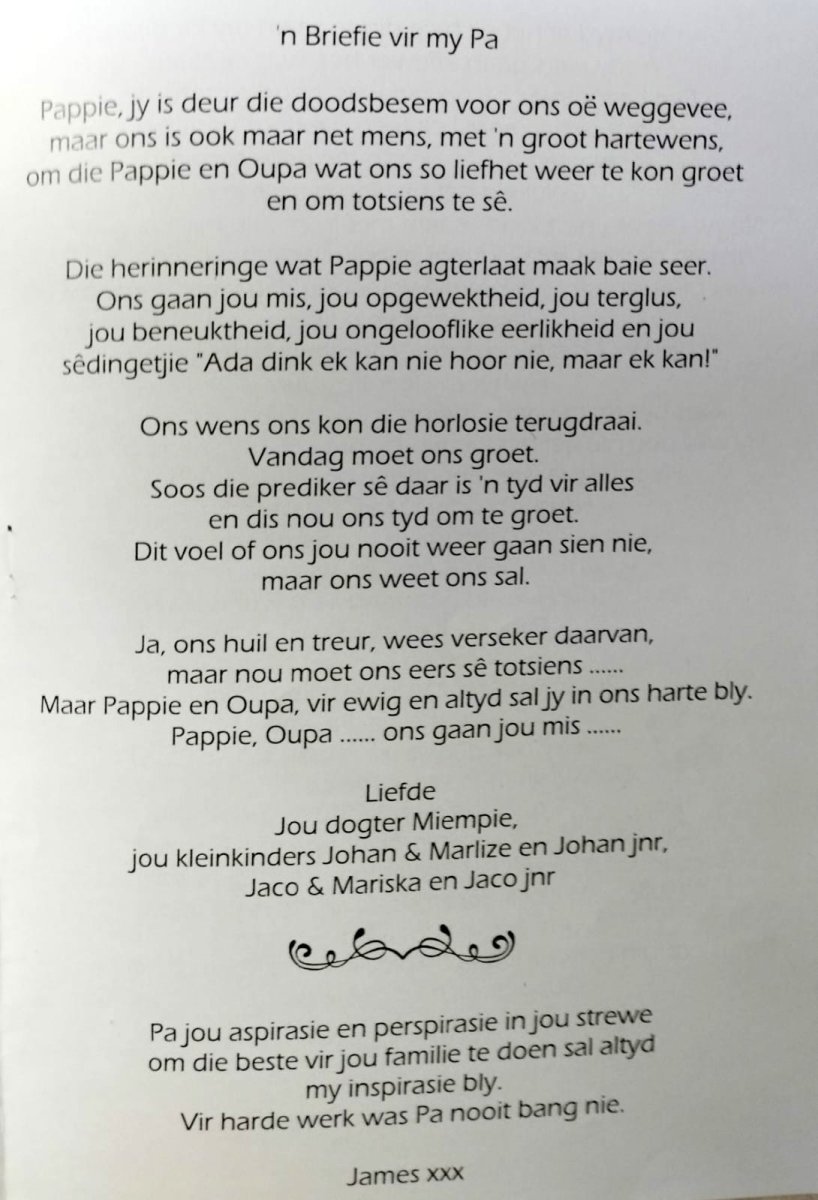 'n Briefie vir my Pa
Pappie, jy is deur die doodsbesem voor ons oë weggevee,
maar ons is ook maar net mens, met 'n groot hartewens,
om die Pappie en Oupa wat ons so liefhet weer te kon groet
en om totsiens te sê.
Die herinneringe wat Pappie agterlaat maak baie seer.
Ons gaan jou mis, jou opgewektheid, jou terglus,
jou beneuktheid, jou ongelooflike eerlikheid en jou
sêdingetjie "Ada dink ek kan nie hoor nie, maar ek kan!"
Ons wens ons kon die horlosie terugdraai.
Vandag moet ons groet.
Soos die prediker sê daar is 'n tyd vir alles
en dis nou ons tyd om te groet.
Dit voel of ons jou nooit weer gaan sien nie,
maar ons weet ons sal.
Ja, ons huil en treur, wees verseker daarvan,
maar nou moet ons eers sê totsiens ......
Maar Pappie en Oupa, vir ewig en altyd sal jy in ons harte bly.
Pappie, Oupa ...... ons gaan jou mis ......
Liefde
Jou dogter Miempie,
jou kleinkinders Johan & Marlize en Johan jnr,
Jaco & Mariska en Jaco jnr
Pa jou aspirasie en perspirasie in jou strewe
om die beste vir jou familie te doen sal altyd
my inspirasie bly.
Vir harde werk was Pa nooit bang nie.
James xxx